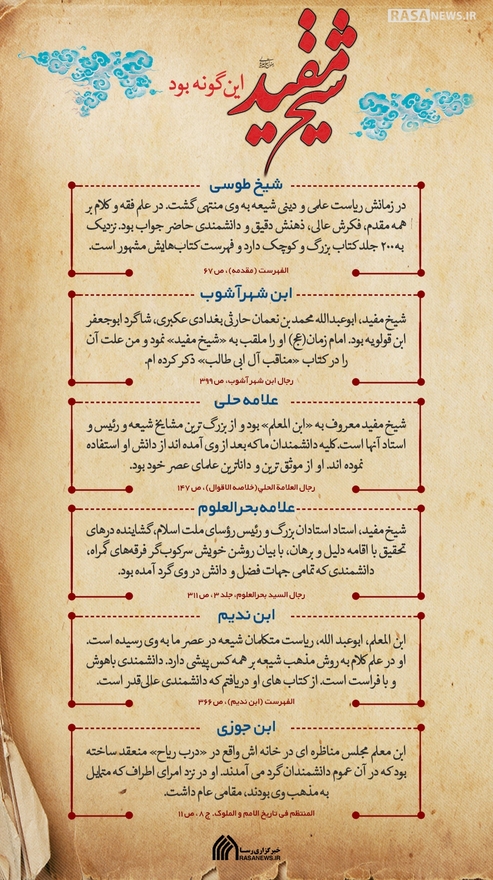 RASANEWS.IR
شیخ مفید
این گونه بود
شیخ طوسی
در زمانش ریاست علمی و دینی شیعه به وی منتهی گشت. در علم فقه و کلام بر
همه مقدم، فکرش عالی، ذهنش دقیق و دانشمندی حاضر جواب بود. نزدیک
به ۲۰۰ جلد کتاب بزرگ و کوچک دارد و فهرست کتاب‌هایش مشهور است.
الفهرست (مقدمه)، ص ۶۷
ابن شهرآشوب
شیخ مفید، ابوعبدالله محمد بن نعمان حارثی بغدادی عکبری، شاگرد ابوجعفر
ابن قولویه بود. امام زمان(عج) او را ملقب به «شیخ مفید» نمود و من علت آن
را در کتاب «مناقب آل ابی طالب» ذکر کرده ام.
رجال ابن شهرآشوب، ص ۳۹۹
علامه حلی
شیخ مفید معروف به «ابن المعلم» بود و از بزرگ ترین مشایخ شیعه و رئیس و
استاد آنها است. کلیه دانشمندان ما که بعد از وی آمده اند از دانش او استفاده
نموده اند. او از موثق ترین و داناترین علمای عصر خود بود.
رجال العلامة الحلي(خلاصه الاقوال)، ص ۱۴۷
علامه بحرالعلوم
شیخ مفید، استاد استادان بزرگ و رئیس رؤسای ملت اسلام، گشاینده درهای
تحقیق با اقامه دلیل و برهان، با بیان روشن خویش سرکوب‌گر فرقه‌های گمراه،
دانشمندی که تمامی جهات فضل و دانش در وی گرد آمده بود.
رجال السید بحرالعلوم، جلد ۳، ص ۳۱۱
ابن ندیم
ابن المعلم، ابوعبد الله، ریاست متکلمان شیعه در عصر ما به وی رسیده است.
او در علم کلام به روش مذهب شیعه بر همه کس پیشی دارد. دانشمندی باهوش
و با فراست است. از کتاب های او دریافتم که دانشمندی عالی‌قدر است.
الفهرست (ابن ندیم)، ص ۳۶۶
ابن جوزی
ابن معلم مجلس مناظره ای در خانه اش واقع در «درب ریاح» منعقد ساخته
بود که در آن عموم دانشمندان گرد می آمدند. او در نزد امرای اطراف که متمایل
به مذهب وی بودند، مقامی عام داشت.
المنتظم فی تاریخ الامم و الملوک، ج ۸، ص ۱۱
خبرگزاری رسا
RASANEWS.IR